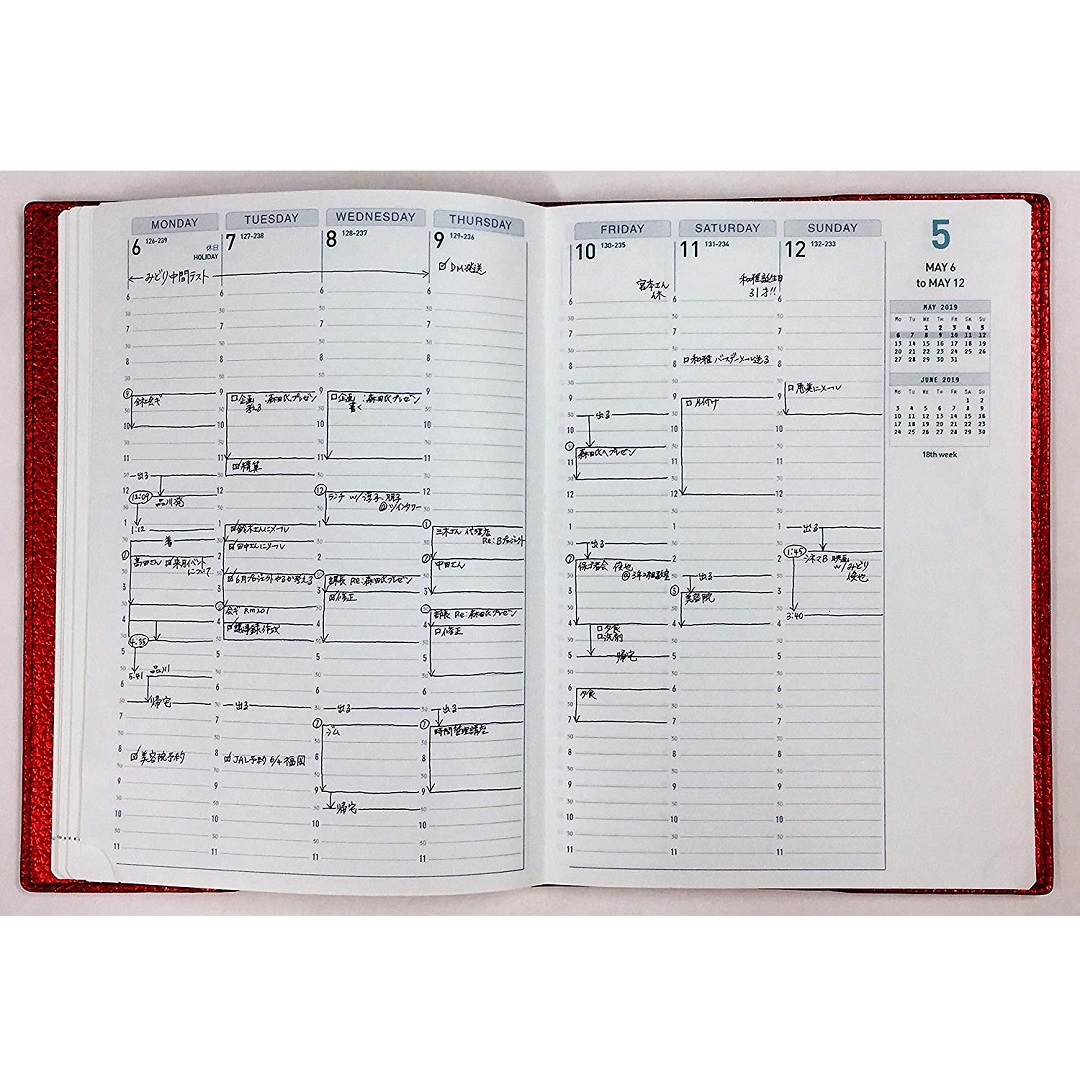 MONDAY
6 126-239 休日
HOLIDAY
みどり中間テスト
会社会ギ
出る
12:09 品川発
1:12 着
高田さん ☑来月イベント
について
4:35
5:41 品川
帰宅
☑美容院予約
TUESDAY
7 127-238
□企画:森田氏プレゼン
練る
☑精算
☑鈴木さんにメール
☑田中さんにメール
☑6月プロジェクトやるか考える
会ギ Rm201
☑議事録作成
出る
☑JAL予約 5/4 福岡
WEDNESDAY
8 128-237
□企画:森田氏プレゼン
書く
ランチ w/淳子、朋子
@ツインタワー
課長 Re:森田氏プレゼン
☑修正
出る
ジム
帰宅
THURSDAY
9 129-236
☑DM発送
三木さん 代理店
Re:Bプロジェクト
中田さん
部長 Re:森田氏プレゼン
□修正
出る
時間管理講座
FRIDAY
10 130-235
宮本さん
休
出る
森田氏へプレゼン
出る
保ゴ者会 俊也
@3年2組教室
□夕食
□洗剤
帰宅
夕食
SATURDAY
11 131-234
和雅誕生日
31才!!
□和雅 バースデーメール送る
□片付け
出る
美容院
SUNDAY
12 132-233
□恵美にメール
出る
1:45 シネマB 映画
w/みどり
俊也
3:40
5
MAY 6
to MAY 12
MAY 2019
Mo Tu We Th Fr Sa Su
1 2 3 4 5
6 7 8 9 10 11 12
13 14 15 16 17 18 19
20 21 22 23 24 25 26
27 28 29 30 31
JUNE 2019
Mo Tu We Th Fr Sa Su
1 2
3 4 5 6 7 8 9
10 11 12 13 14 15 16
17 18 19 20 21 22 23
24 25 26 27 28 29 30
18th week